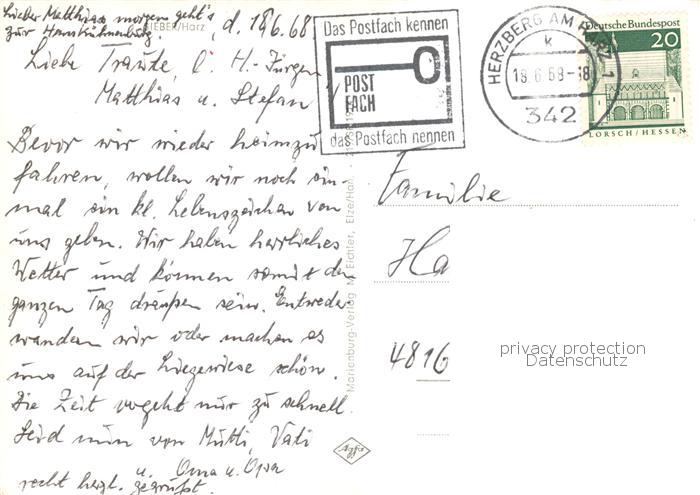 Lieber Matthias morgen geht's
zur Hanskühnenburg.
SIEBER/Harz
, d. 18.6.68
Liebe Traute, l. H.-Jürgen
Matthias u. Stefan
Bevor wir wieder heimzu
fahren, wollen wir noch ein-
mal ein kl. Lebenszeichen von
uns geben. Wir haben herrliches
Wetter und können somit den
ganzen Tag draußen sein. Entweder
wandern wir oder machen es
uns auf der Liegewiese schön.
Die Zeit vergeht nur zu schnell.
Seid nun von Mutti, Vati
u. Oma u. Opa
recht herzl. gegrüßt.
Marienburg-Verlag M. Eichler, Elze/Han.
Agfa
Das Postfach kennen
POST
FACH
das Postfach nennen
HERZBERG AM HARZ 1
k
18.6.68-18
342
Deutsche Bundespost
20
LORSCH/HESSEN
Familie
Ha
4816
privacy protection
Datenschutz